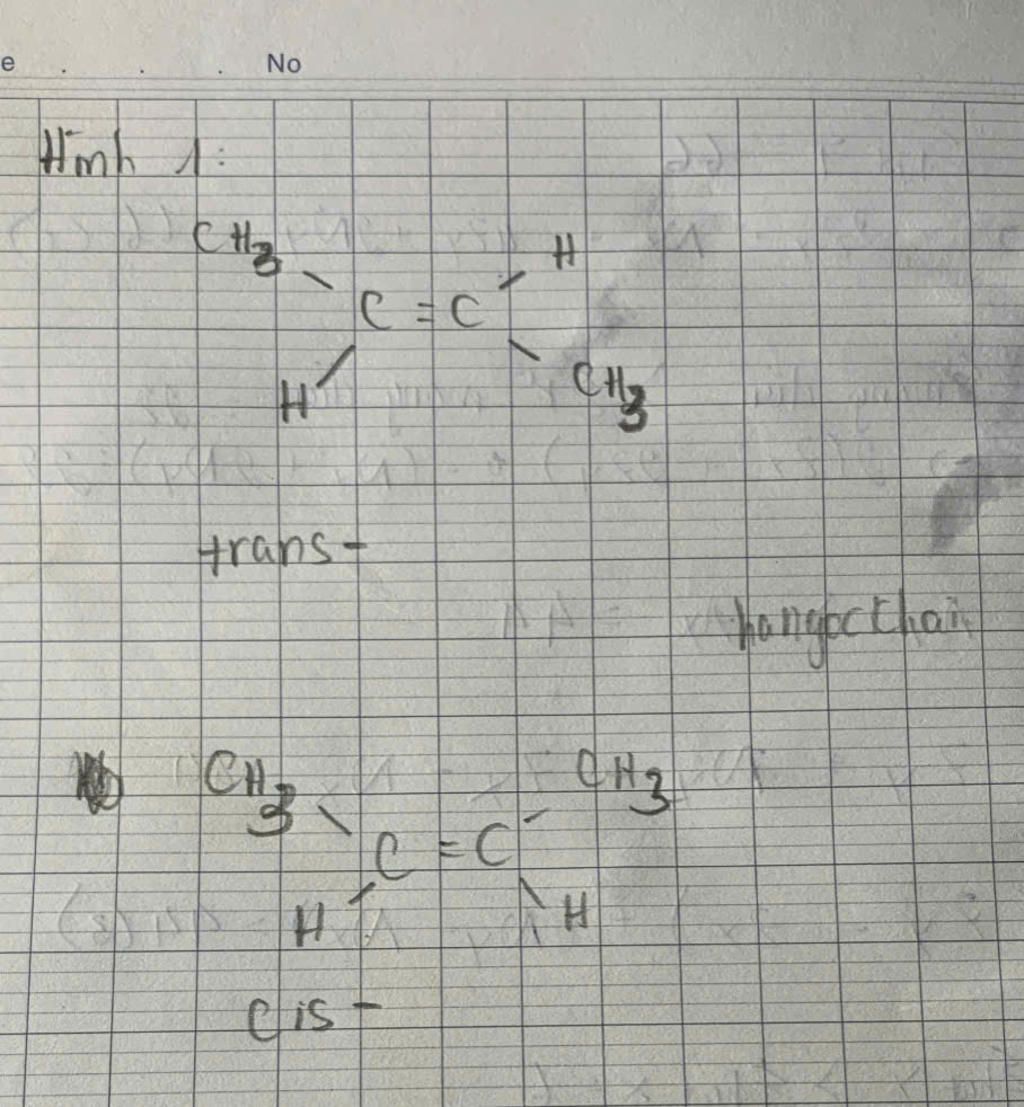 e . . . . No
Hình 1:
CH3 H
C = C
H CH3
trans-
hangocthai
CH3 CH3
C = C
H H
Cis-